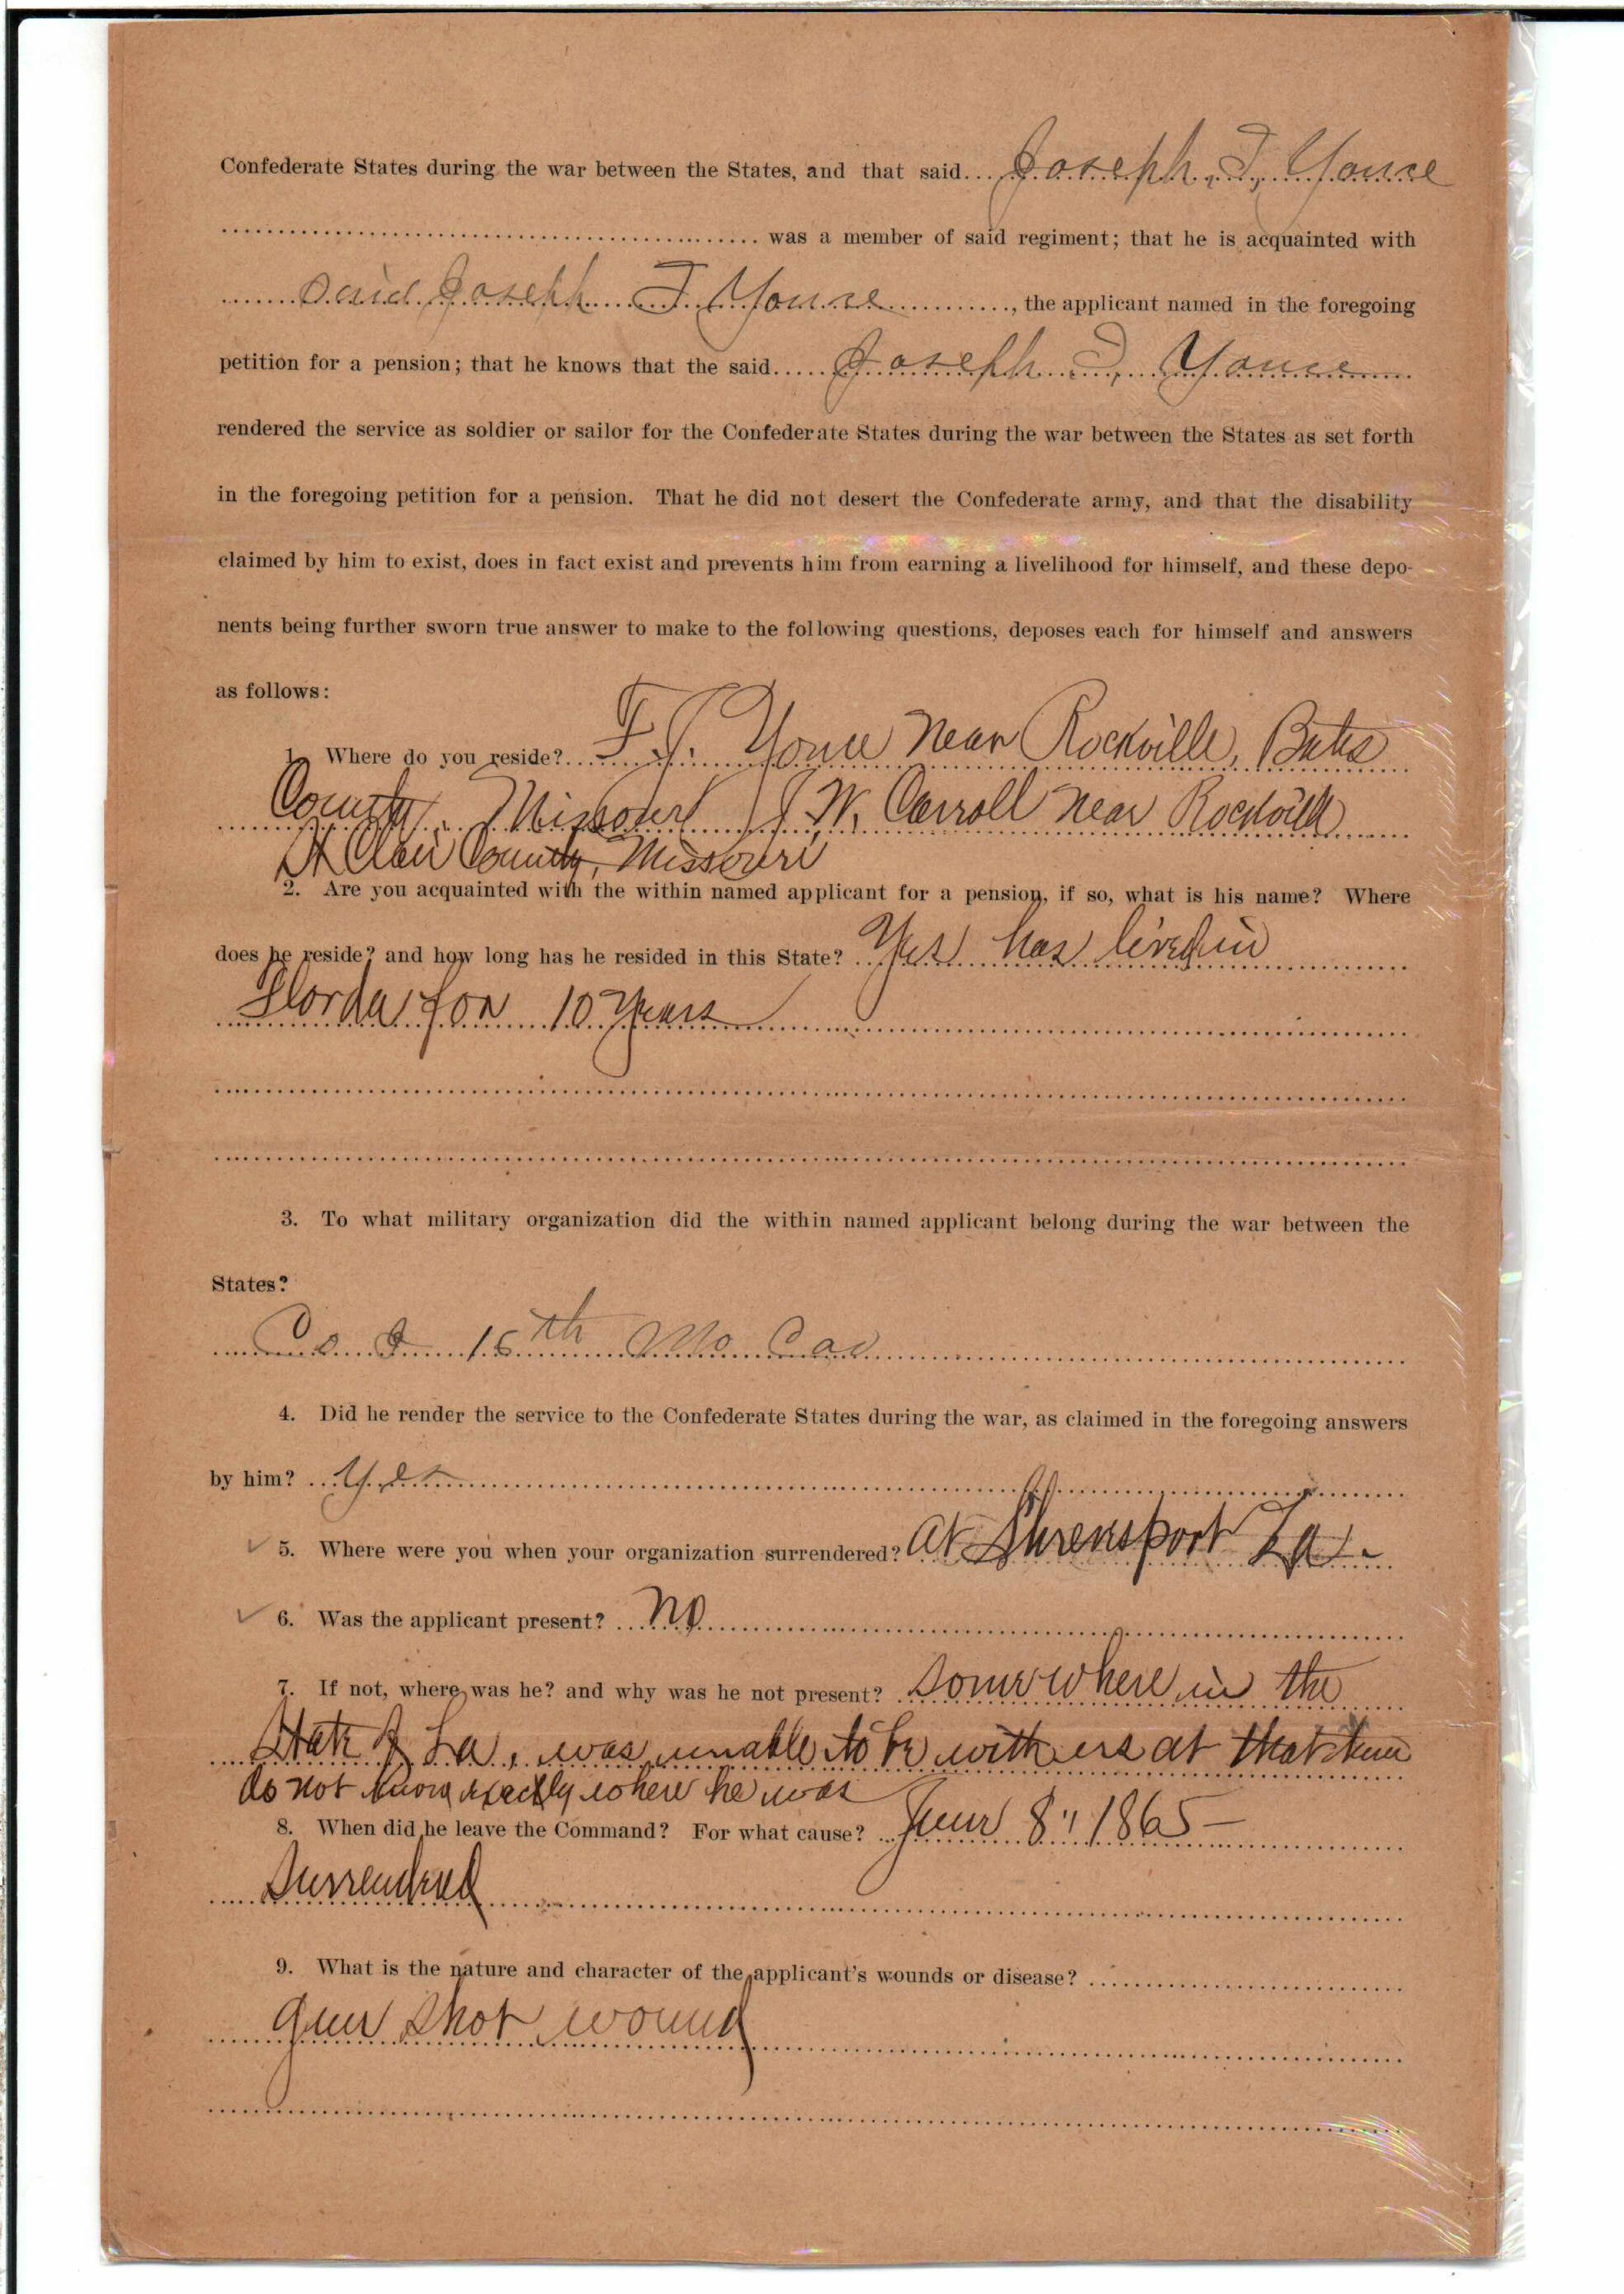 Confederate States during the war between the States, and that said... Joseph T. Younce
was a member of said regiment; that he is acquainted with
said Joseph T. Younce, the applicant named in the foregoing
petition for a pension; that he knows that the said Joseph T. Younce
rendered the service as soldier or sailor for the Confederate States during the war between the States as set forth
in the foregoing petition for a pension. That he did not desert the Confederate army, and that the disability
claimed by him to exist, does in fact exist and prevents him from earning a livelihood for himself, and these depo-
nents being further sworn true answer to make to the following questions, deposes each for himself and answers
as follows:
1. Where do you reside? F. J. Younce near Rockville, Bates
County, Missouri J. W. Carroll near Rockville
St Clair County, Missouri
2. Are you acquainted with the within named applicant for a pension, if so, what is his name? Where
does he reside? and how long has he resided in this State? Yes has lived in
Florda for 10 Years
3. To what military organization did the within named applicant belong during the war between the
States?
Co. 16th Mo Cav
4. Did he render the service to the Confederate States during the war, as claimed in the foregoing answers
by him? Yes
5. Where were you when your organization surrendered? at Shreveport La.
6. Was the applicant present? No
7. If not, where was he? and why was he not present? Somewhere in the
State of La, was unable to be with us at that time
do not know exactly where he was
8. When did he leave the Command? For what cause? June 8" 1865 -
Surrendered
9. What is the nature and character of the applicant's wounds or disease?
gun shot wound